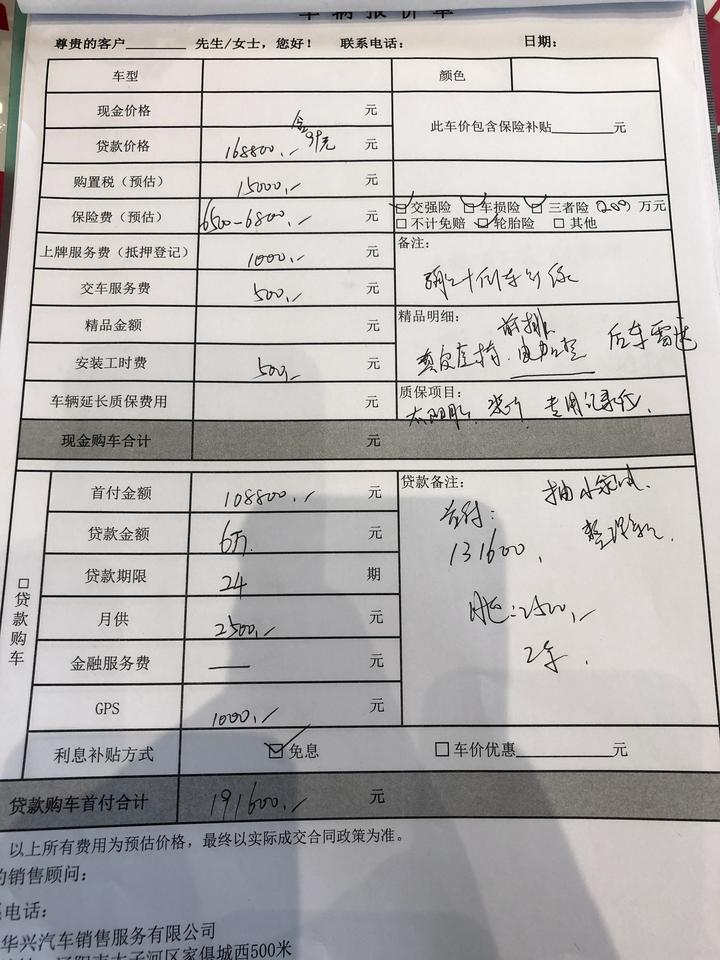 车辆报价单
尊贵的客户________ 先生/女士，您好！ 联系电话： 日期：
车型 颜色
现金价格 元 此车价包含保险补贴________元
贷款价格 168800.- 元
购置税（预估） 15000.- 元
保险费（预估） 6500-6800.- 元 交强险 车损险 三者险（200）万元
不计免赔 轮胎险 其他
上牌服务费（抵押登记） 1000.- 元 备注：
交车服务费 500.- 元
精品金额 元 精品明细：
前排
后车雷达
安装工时费 500.- 元
车辆延长质保费用 元 质保项目：
太阳膜 专用记录仪.
现金购车合计 元
□贷款购车
首付金额 108800.- 元 贷款备注：
首付：
131600.
贷款金额 6万. 元
贷款期限 24 期
月供 2500.- 元
月还:2500.-
2年.
金融服务费 — 元
GPS 1000.- 元
利息补贴方式 免息 □车价优惠________元
贷款购车首付合计 191600.- 元
以上所有费用为预估价格，最终以实际成交合同政策为准。
的销售顾问：
系电话：
华兴汽车销售服务有限公司
辽阳市太子河区家俱城西500米